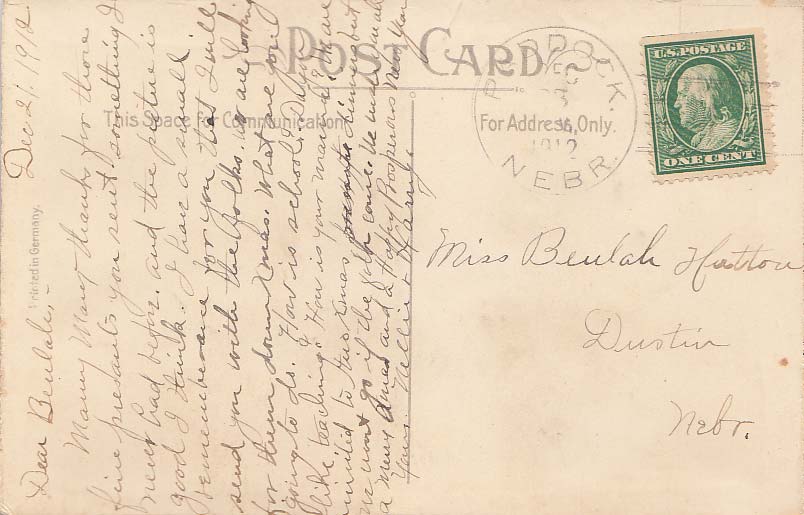 POST CARD
This Space for Communication
For Address, Only.
Printed in Germany.
U.S. POSTAGE
ONE CENT
DEC
1912
NEBR.
Miss Beulah Hutton
Dustin
Nebr.
Dec 21, 1912
Dear Beulah,-
Many Many thanks for those
fine presants you sent something I
never had before and the picture is
good I think. I have a small
rememberance for you that I will
send you with the folks. We are looking
for them down Xmas. What are you
going to do. How is school & Duffy
like teaching? How is your mamma? We are
invited to this Xmas dinner but
we wont go if the folks come. We wish you all
a merry Xmas and a Happy Prosperous New Year
Yours. Nellie & Harry